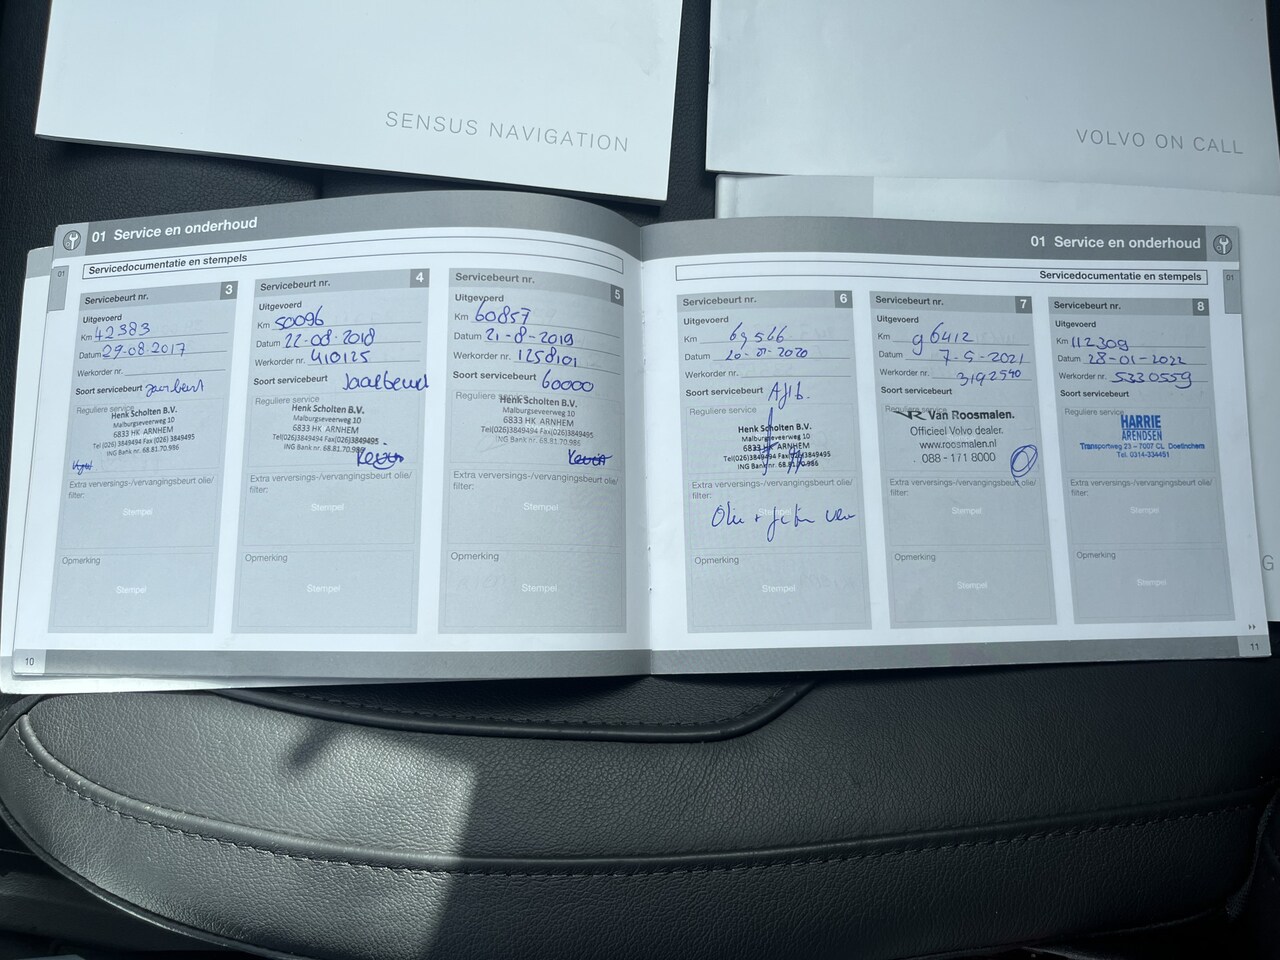 SENSUS NAVIGATION
VOLVO ON CALL
01 Service en onderhoud
01
Servicedocumentatie en stempels
Servicebeurt nr. 3
Uitgevoerd
Km 42383
Datum 29-08-2017
Werkorder nr.
Soort servicebeurt
Reguliere service
Henk Scholten B.V.
Malburgseveerweg 10
6833 HK ARNHEM
Tel(026)3849494 Fax(026)3849495
ING Bank nr. 68.81.70.986
Extra verversings-/vervangingsbeurt olie/
filter:
Stempel
Opmerking
Stempel
Servicebeurt nr. 4
Uitgevoerd
Km 50096
Datum 22-08-2018
Werkorder nr. 410125
Soort servicebeurt Jaarbeurt
Reguliere service
Henk Scholten B.V.
Malburgseveerweg 10
6833 HK ARNHEM
Tel(026)3849494 Fax(026)3849495
ING Bank nr. 68.81.70.986
Extra verversings-/vervangingsbeurt olie/
filter:
Stempel
Opmerking
Stempel
Servicebeurt nr. 5
Uitgevoerd
Km 60857
Datum 21-8-2019
Werkorder nr. 1258101
Soort servicebeurt 60000
Reguliere service
Henk Scholten B.V.
Malburgseveerweg 10
6833 HK ARNHEM
Tel(026)3849494 Fax(026)3849495
ING Bank nr. 68.81.70.986
Extra verversings-/vervangingsbeurt olie/
filter:
Stempel
Opmerking
Stempel
10
01 Service en onderhoud
01
Servicedocumentatie en stempels
Servicebeurt nr. 6
Uitgevoerd
Km 69566
Datum
Werkorder nr.
Soort servicebeurt
Reguliere service
Henk Scholten B.V.
Malburgseveerweg 10
6833 HK ARNHEM
Tel(026)3849494 Fax(026)3849495
ING Bank nr. 68.81.70.986
Extra verversings-/vervangingsbeurt olie/
filter:
Olie +
Opmerking
Stempel
Servicebeurt nr. 7
Uitgevoerd
Km 96412
Datum 7-5-2021
Werkorder nr. 3192540
Soort servicebeurt
Reguliere service
Van Roosmalen.
Officieel Volvo dealer.
www.roosmalen.nl
088 - 171 8000
Extra verversings-/vervangingsbeurt olie/
filter:
Stempel
Opmerking
Stempel
Servicebeurt nr. 8
Uitgevoerd
Km 112309
Datum 28-01-2022
Werkorder nr. 5330559
Soort servicebeurt
Reguliere service
HARRIE
ARENDSEN
Transportweg 23 - 7007 CL Doetinchem
Tel. 0314-334451
Extra verversings-/vervangingsbeurt olie/
filter:
Stempel
Opmerking
Stempel
11